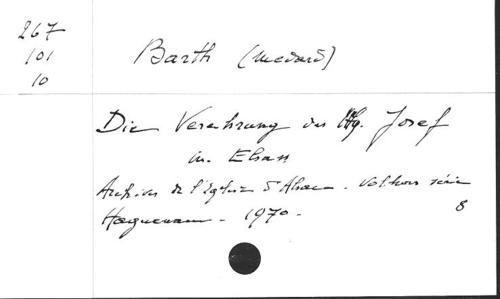 267
101
10
Barth (Médard)
Die Verehrung des Hlg. Josef
in Elsass
Archives de l'église d'Alsace. série
8
Haguenau - 1970.